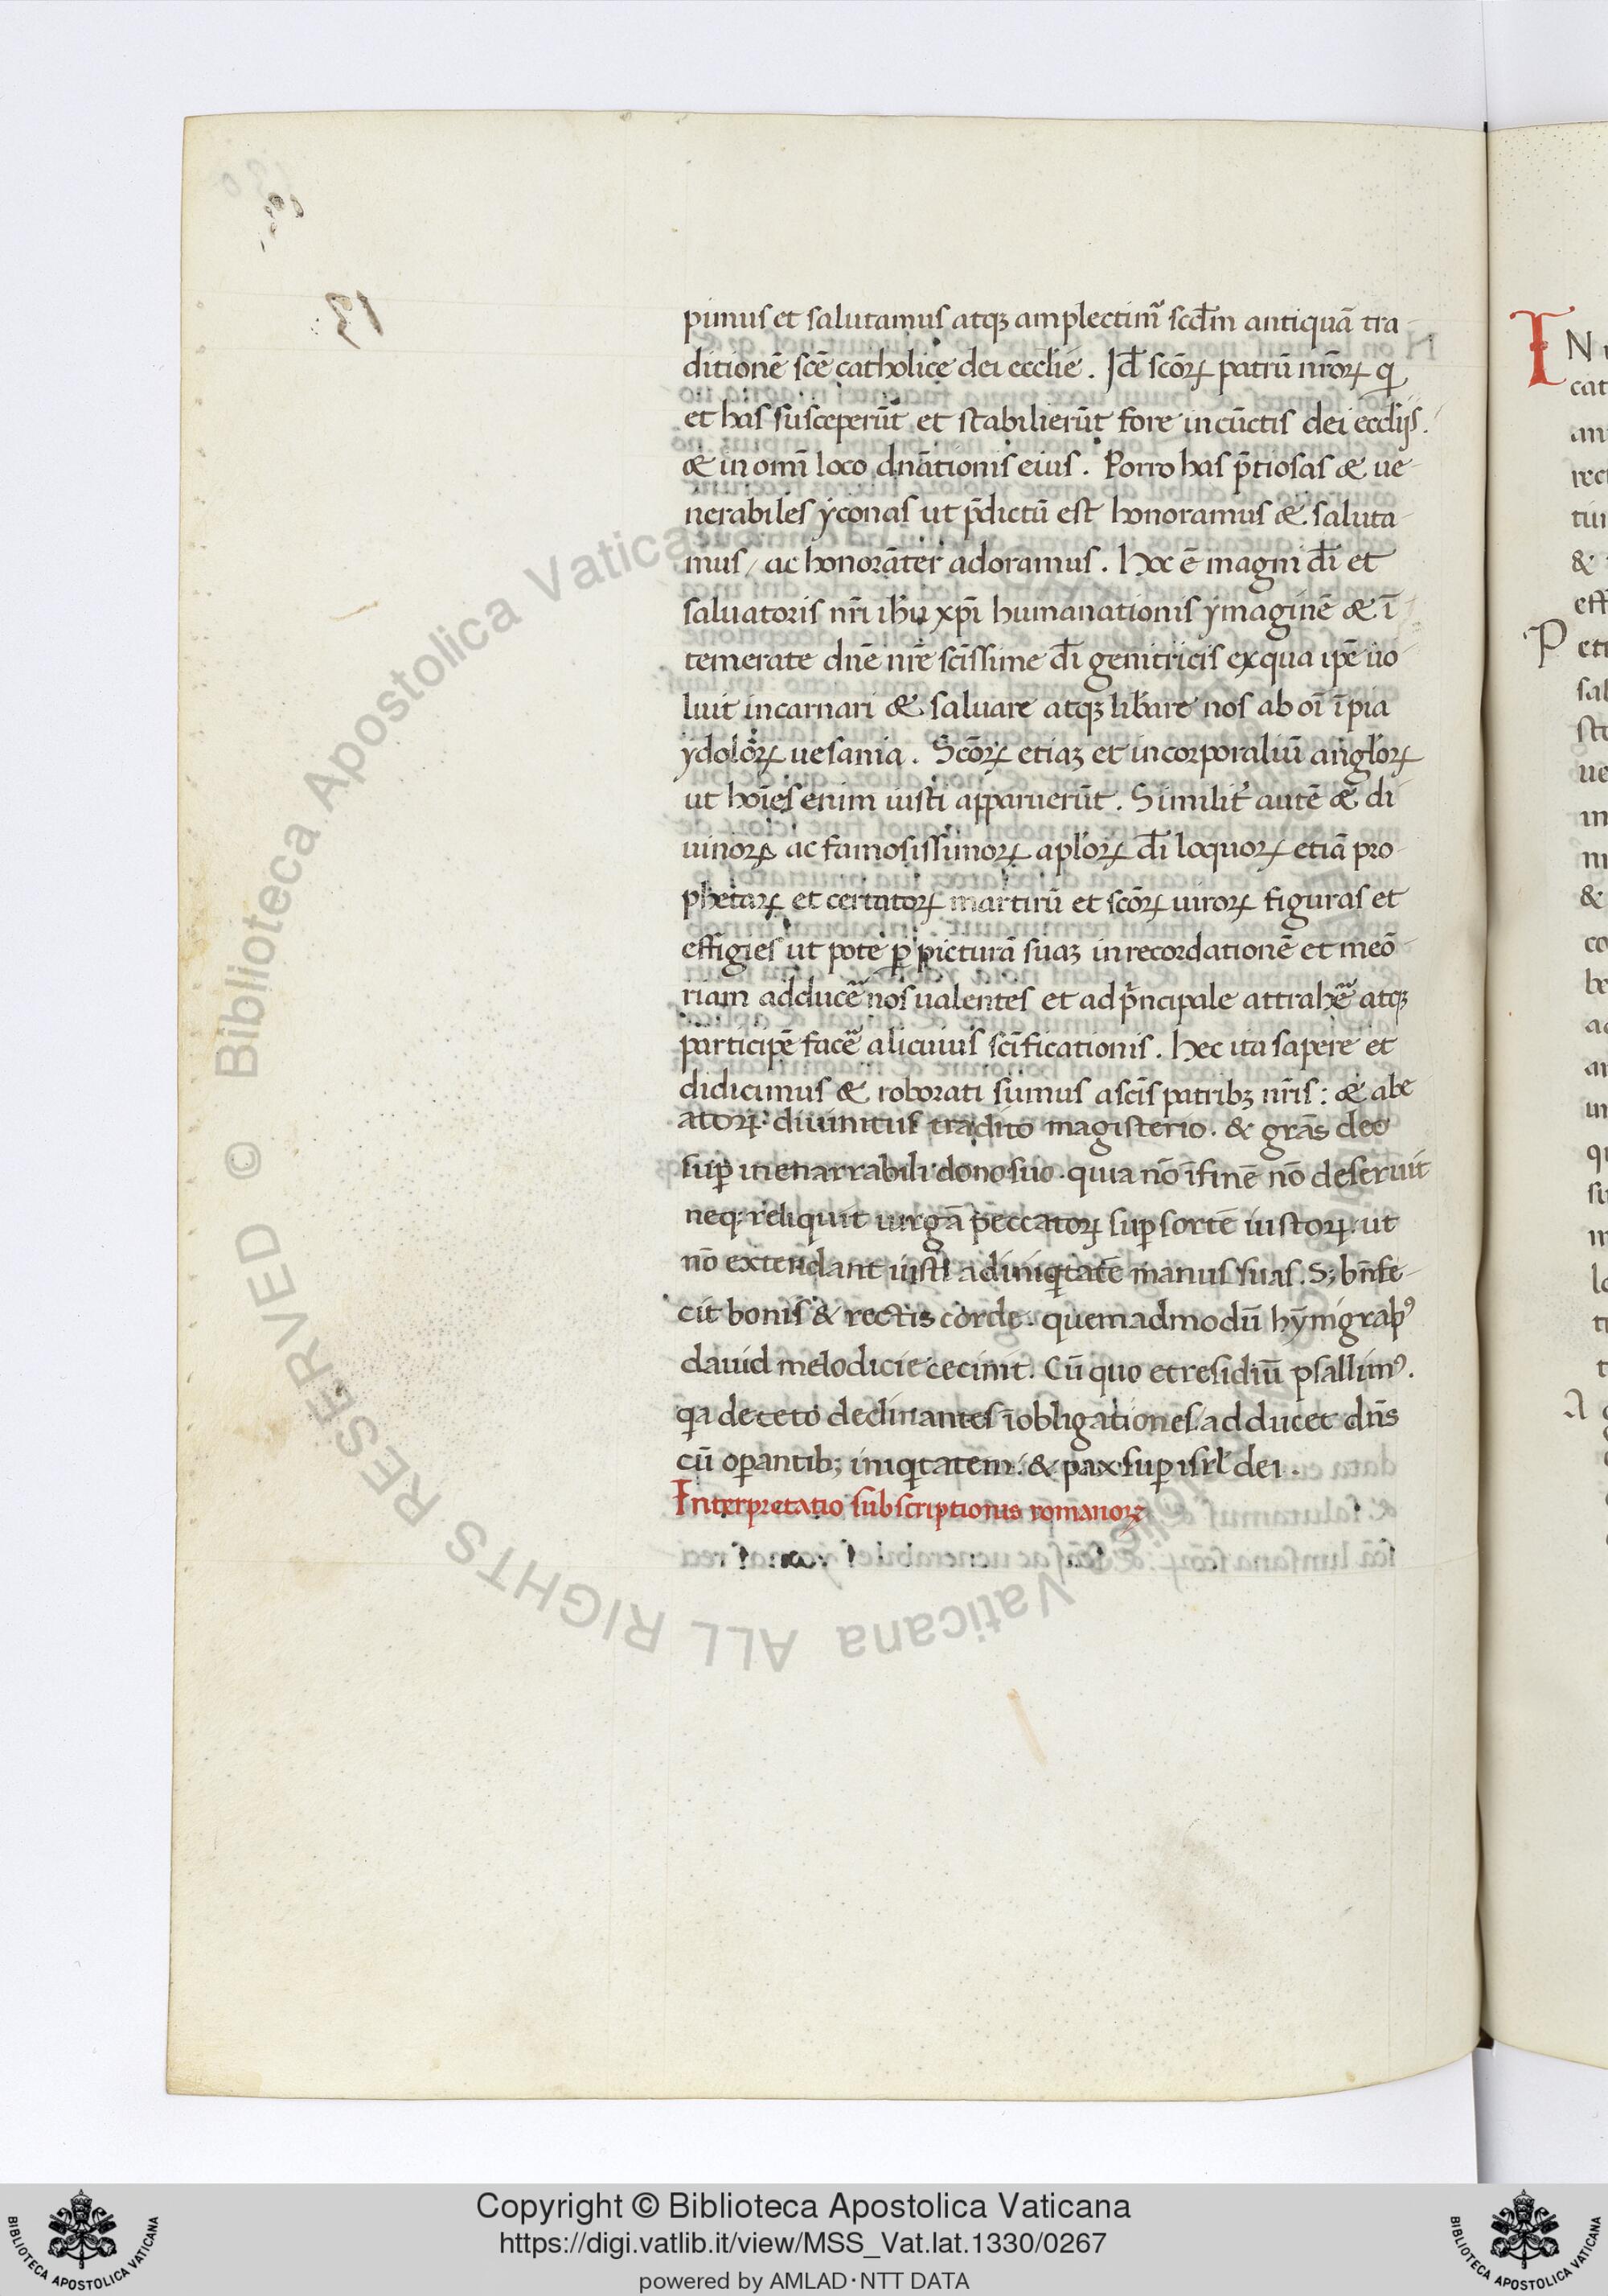 pimus et salutamus atqꝫ amplectim᷑ scđm antiquā tra-
ditionē scē catholice dei ecclie. Iđ scōꝝ patrū nr̄oꝝ q
et has susceperūt et stabilierūt fore in cūctis dei eccliis.
& in omī loco dnātionis eius. Porro has p̄tiosas & ue-
nerabiles yconas ut p̄dictū est honoramus & saluta-
mus / ac honorāter adoramus. Hoc ē magni dī et
saluatoris nr̄i ihu xp̄i humanationis ymaginē & ī
temerate dnē nr̄e scissime dī genitricis ex qua ipē uo-
luit incarnari & saluare atqꝫ libare nos ab oī īpia
ydoloꝝ uesania. Scōꝝ etiaꝫ et incorporaliū angloꝝ
ut hoīes enim iusti apparuerūt. Similit autē & di
uinoꝝ ac famosissimoꝝ aploꝝ dī loquoꝝ etiā pro-
phetaꝝ et certatoꝝ martirū et scōꝝ uiroꝝ figuras et
effigies ut pote ꝑ picturā suaꝫ in recordationē et meō-
riam adducē nos ualentes et ad p̄ncipale attrahē atqꝫ
participē facē alicuius scīficationis. Hec ita sapere et
didicimus & roborati sumus a scis patribꝫ nr̄is: & abe
atoꝝ diuinitus tradito magisterio. & grās deo
suꝑ inenarrabili dono suo. quia nō ī finē nō deseruit
neqꝫ reliquit uirgā peccatoꝝ suꝑ sortē iustoꝝ. ut
nō extendant iusti ad iniqtatē manus suas. S; bn̄fe-
cit bonis & rectis corde. quemadmodū hȳnigraphꝰ
dauid melodicie cecinit. Cū quo et residiū psallimꝰ.
qa de ceto declinantes ī obligationes adducet dn̄s
cū oꝑantib; iniqtatem. & pax suꝑ isrl dei.
Interpretatio subscriptionis romanoꝝ
Copyright © Biblioteca Apostolica Vaticana
https://digi.vatlib.it/view/MSS_Vat.lat.1330/0267
powered by AMLAD·NTT DATA